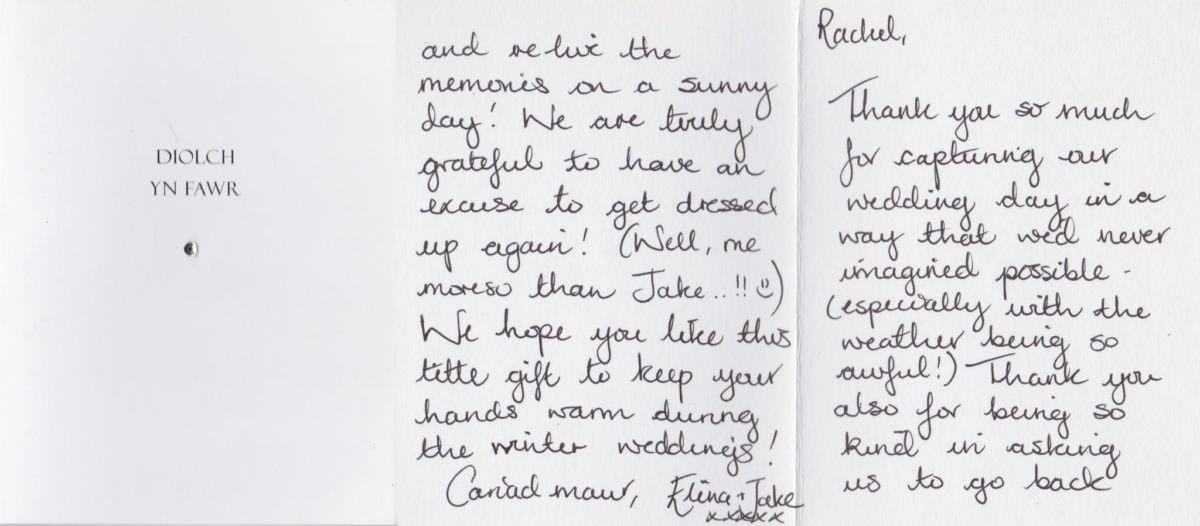 DIOLCH
YN FAWR
Rachel,
Thank you so much
for capturing our
wedding day in a
way that we'd never
imagined possible -
(especially with the
weather being so
awful!) Thank you
also for being so
kind in asking
us to go back
and relive the
memories on a sunny
day! We are truly
grateful to have an
excuse to get dressed
up again! (Well, me
moreso than Jake..!! ☺)
We hope you like this
little gift to keep your
hands warm during
the winter weddings!
Cariad mawr, Elina + Jake
xxxxx